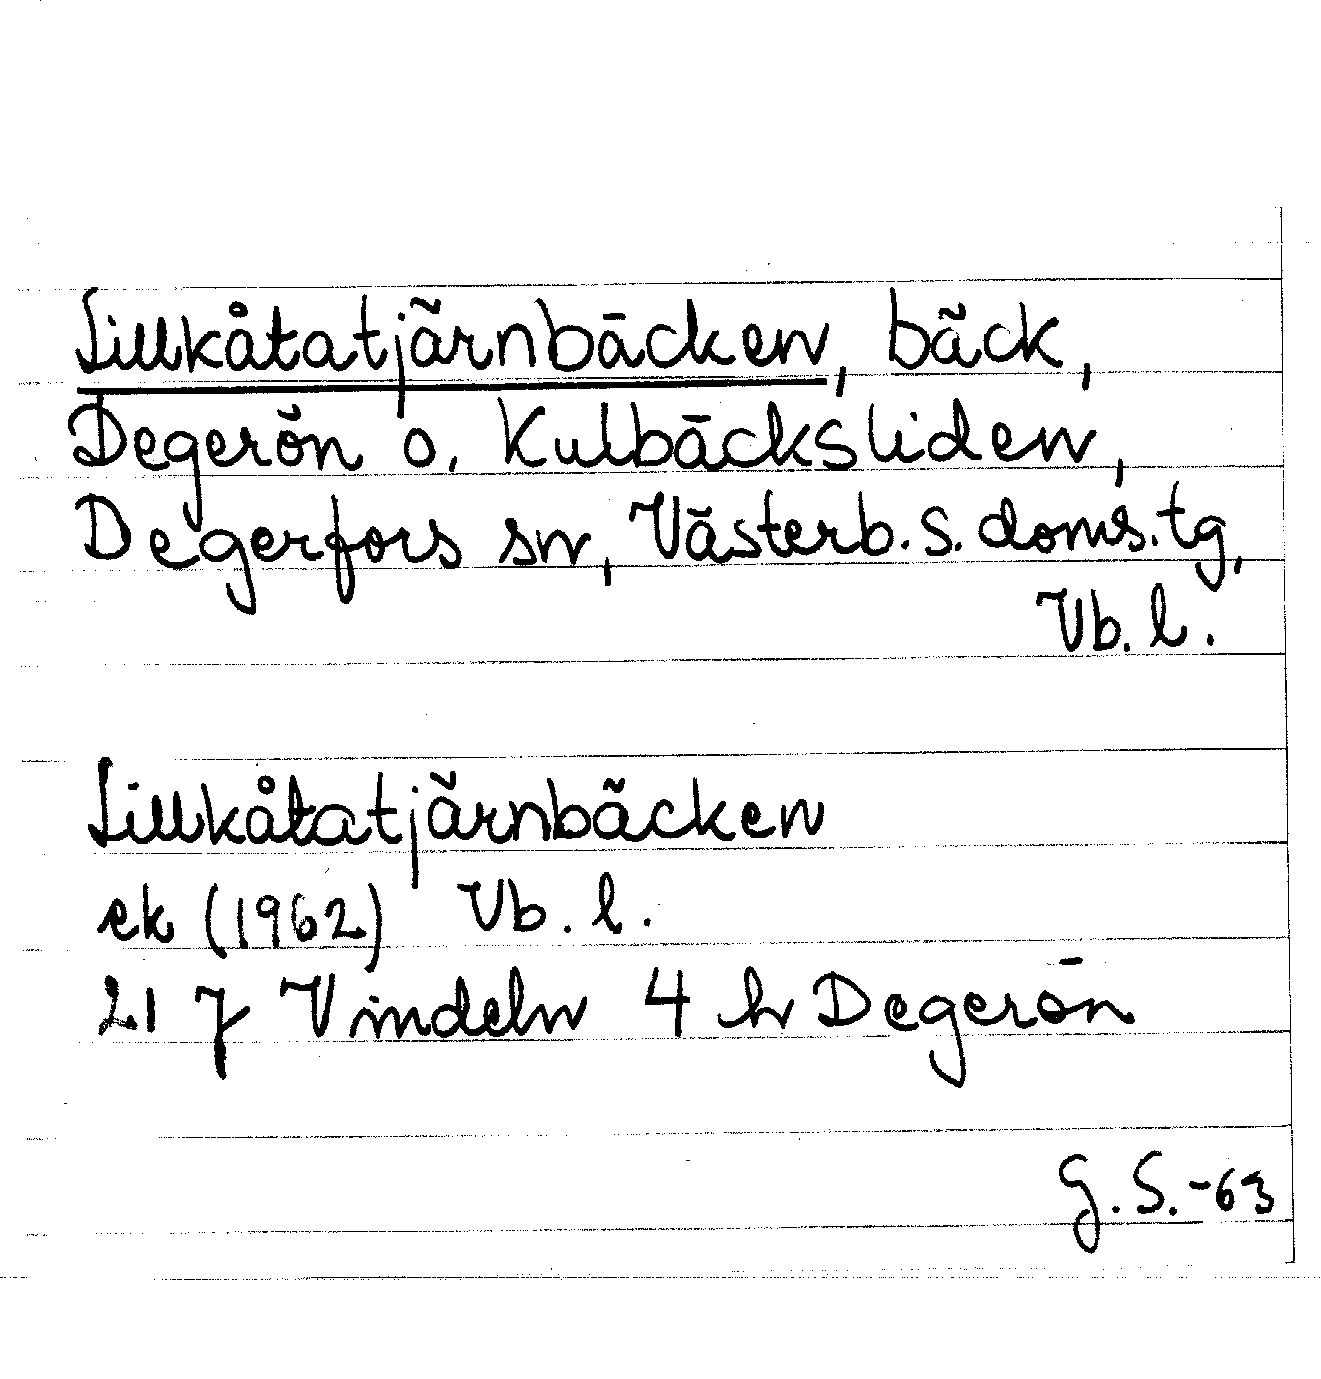 Lillkåtatjärnbäcken, bäck,
Degerön o. Kulbäcksliden,
Degerfors sn, Västerb. s. doms. tg,
Vb. l.
Lillkåtatjärnbäcken
ek (1962) Vb. l.
21 J Vindeln 4 h Degerön
G. S. -63